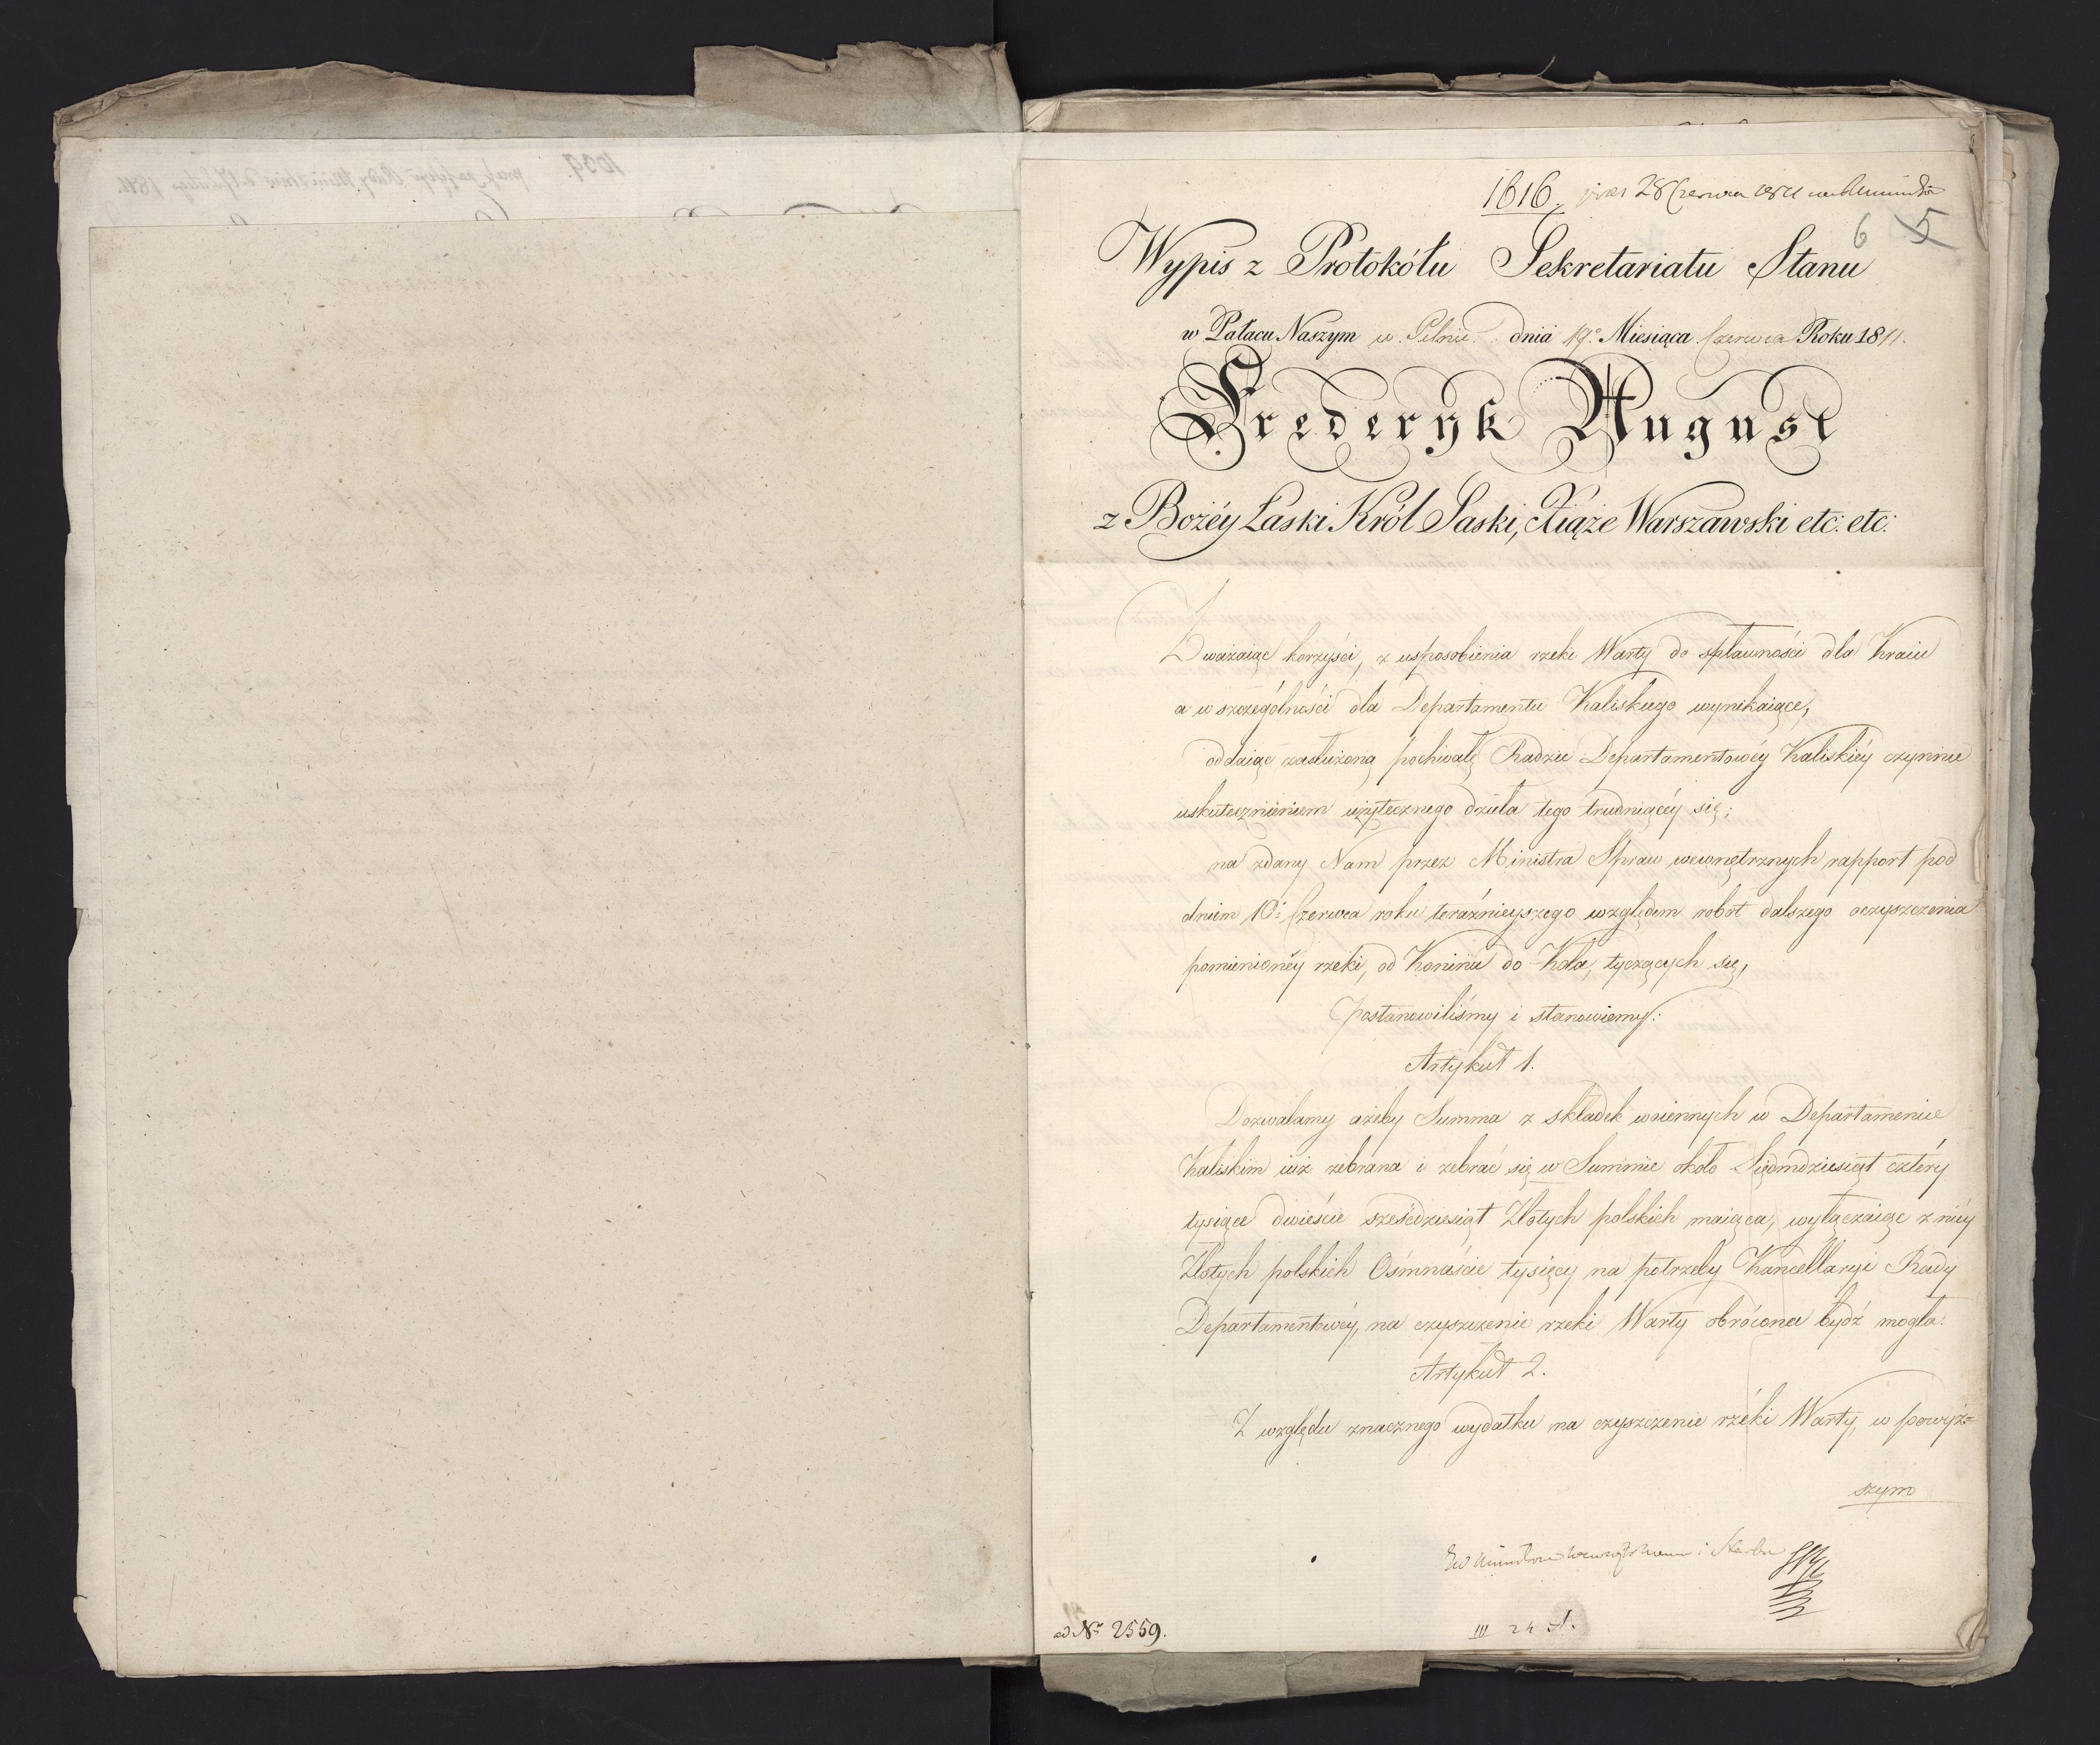 1039.
1616. 28 Czerwca 1811
6 5
Wypis z Protokółu Sekretariatu Stanu
w Pałacu Naszym w Pilnic. dnia 19° Miesiąca Czerwca Roku 1811.
Frederyk August
z Bożéy Łaski Król Saski, Xiąże Warszawski etc: etc:
Zważaiąc korzyści, z usposobienia rzeki Warty do spławności dla Kraiu
a w szczególności dla Departamentu Kaliskiego wynikaiące,
oddaiąc zasłużoną pochwałę Radzie Departamentowéy Kaliskiéy czynnie
uskutecznieniem użytecznego dzieła tego trudniącéy się;
na zdany Nam przez Ministra Spraw wewnętrznych rapport pod
dniem 10: Czerwca roku teraźnieyszego względem robot dalszego oczyszczenia
pomienionéy rzeki, od Konina do Koła, tyczących się,
postanowiliśmy i stanowiemy:
Artykuł 1.
Dozwalamy ażeby Summa z składek woiennych w Departamencie
Kaliskim iuż zebrana i zebrać się w Summie około Siędmdziesiąt cztéry
tysiące dwieście sześćdziesiąt Złotych polskich maiąca, wyłączaiąc z niéy
Złotych polskich Ośmnaście tysięcy na potrzeby Kancellaryi Rady
Departamentowéy, na czyszczenie rzeki Warty obrócona bydź mogła.
Artykuł 2.
Z względu znacznego wydatku na czyszczenie rzéki Warty, w powyż=
szym
i Skarbu
ad Nr 2559.
III 24 A.